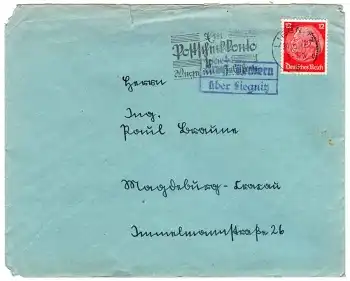 Ein
Postscheckkonto
über Liegnitz
12
12
Deutsches Reich
Herrn
Ing.
Paul Braune
Magdeburg-Cracau
Immelmannstraße 26